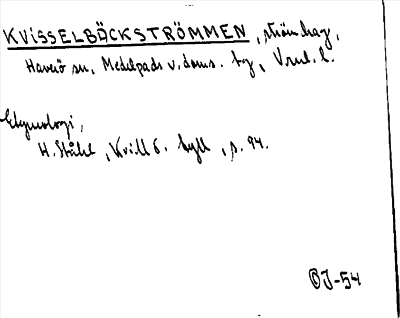 KVISSELBÄCKSTRÖMMEN, strömdrag,
Haverö sn, Medelpads v. doms. tg,
Etymologi,
H. Ståhl, Kvill o. tyll, s. 94.
ÖJ-54